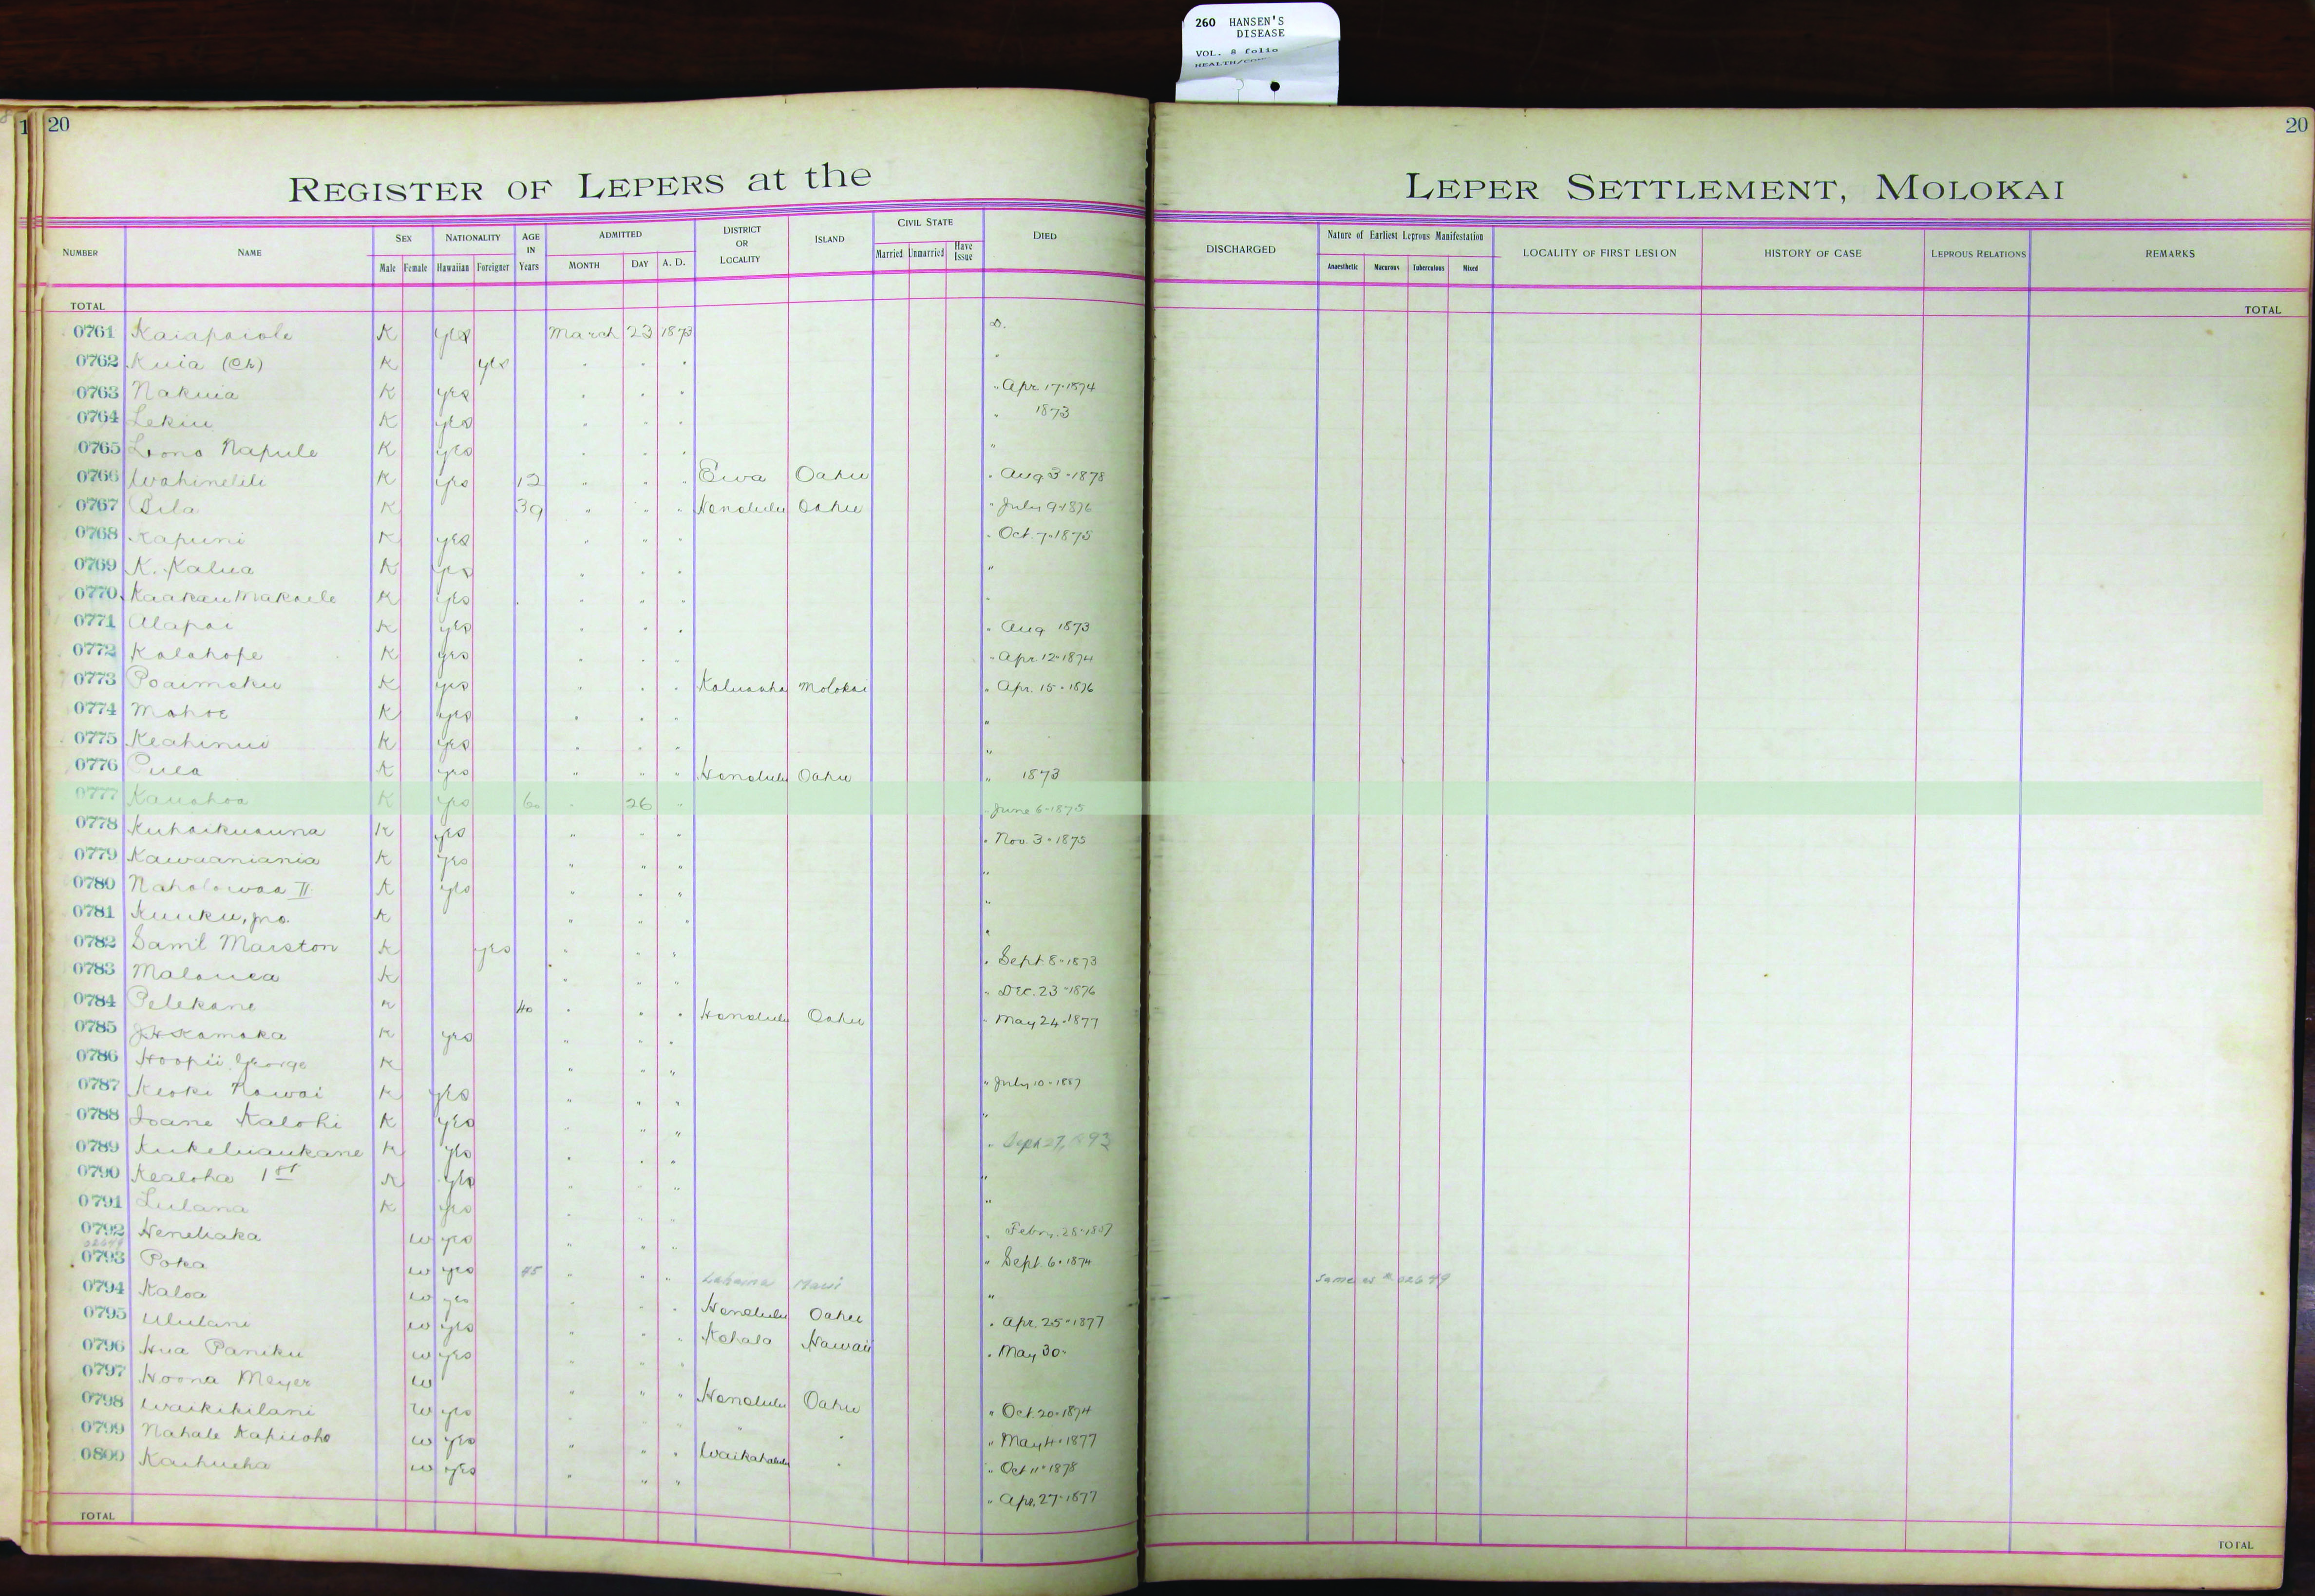 260 HANSEN'S
DISEASE
VOL. 8 folio
HEALTH/
1 20
20
REGISTER OF LEPERS at the
LEPER SETTLEMENT, MOLOKAI
NUMBER NAME SEX Male Female NATIONALITY Hawaiian Foreigner AGE IN Years ADMITTED MONTH DAY A. D. DISTRICT OR LOCALITY ISLAND CIVIL STATE Married Unmarried Have Issue DIED
DISCHARGED Nature of Earliest Leprous Manifestation Anaesthetic Macurous Tuberculous Mixed LOCALITY OF FIRST LESION HISTORY OF CASE LEPROUS RELATIONS REMARKS
TOTAL TOTAL
0761 Kaiapaiole K yes March 23 1873 D.
0762 Kuia (Ch) K yes " " " "
0763 Nakuia K yes " " " " Apr 17-1874
0764 Lekiu K yes " " " " 1873
0765 Lono Napule K yes " " " "
0766 Wahinelili K yes 12 " " " Ewa Oahu " Aug 3-1878
0767 Pila K 39 " " " Honolulu Oahu " July 9-1876
0768 Kapuni K yes " " " " Oct. 7-1875
0769 K. Kalua K yes " " " "
0770 Kaakau Makaele K yes " " " "
0771 Alapai K yes " " " " Aug 1873
0772 Kalahope K yes " " " " Apr. 12-1874
0773 Poaimoku K yes " " " Kaluaaha Molokai " Apr. 15-1876
0774 Mahoe K yes " " " "
0775 Keahinui K yes " " " "
0776 Puea K yes " " " Honolulu Oahu " 1873
0777 Kauahoa K yes 60 " 26 " " June 6-1875
0778 Kuhaikuauna K yes " " " " Nov. 3-1875
0779 Kawaaniania K yes " " " "
0780 Naholowaa II K yes " " " "
0781 Kuuku, jno. K " " " "
0782 Saml Marston K yes " " " " Sept 8-1873
0783 Malouea K " " " " Dec. 23-1876
0784 Pelekane K 40 " " " Honolulu Oahu " May 24-1877
0785 J H Kamaka K yes " " "
0786 Hoopii George K " " " " July 10-1887
0787 Keoki Nawai K yes " " " "
0788 Ioane Kalohi K yes " " " " Sept 27, 1893
0789 Kukeluaukane K yes " " " "
0790 Kealoha 1st K yes " " " "
0791 Lulana K yes " " " " Feby. 28-1887
0792 Henehaka W yes " " " " Sept. 6-1874
02649
0793 Poka W yes 45 " " " Lahaina Maui " same as # 02649
0794 Kaloa W yes " " " Honolulu Oahu " Apr. 25-1877
0795 Ululani W yes " " " Kohala Hawaii " May 30-
0796 Hua Paniku W yes " " "
0797 Hoona Meyer W " " " Honolulu Oahu " Oct. 20-1874
0798 Waikikilani W yes " " " " " " May 4-1877
0799 Nahale Kapiioho W yes " " " Waikahalulu " " Oct 11-1878
0800 Kaihueha W yes " " " " Apr. 27-1877
TOTAL TOTAL